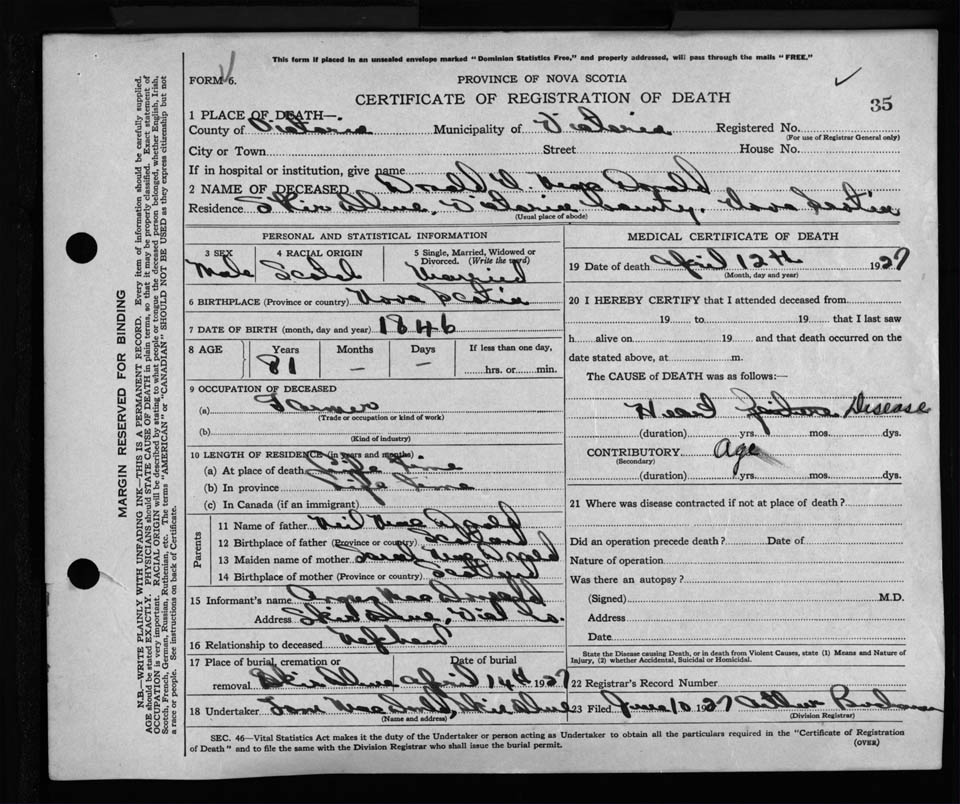 This form if placed in an unsealed envelope marked "Dominion Statistics Free," and properly addressed, will pass through the mails "FREE."
FORM 6.
PROVINCE OF NOVA SCOTIA
CERTIFICATE OF REGISTRATION OF DEATH
35
1 PLACE OF DEATH—
County of Victoria Municipality of Victoria Registered No.
(For use of Registrar General only)
City or Town Street House No.
If in hospital or institution, give name
2 NAME OF DECEASED Donald
Residence Skir Dhue, Victoria County, Nova Scotia
(Usual place of abode)
PERSONAL AND STATISTICAL INFORMATION
3 SEX 4 RACIAL ORIGIN 5 Single, Married, Widowed or Divorced. (Write the word)
Male Scotch Married
6 BIRTHPLACE (Province or country) Nova Scotia
7 DATE OF BIRTH (month, day and year) 1846
8 AGE Years Months Days If less than one day,
81 — — hrs. or min.
9 OCCUPATION OF DECEASED
(a) Farmer
(Trade or occupation or kind of work)
(b)
(Kind of industry)
10 LENGTH OF RESIDENCE (in years and months)
(a) At place of death Life Time
(b) In province Life Time
(c) In Canada (if an immigrant)
Parents
11 Name of father Neil MacDonald
12 Birthplace of father (Province or country) Scotland
13 Maiden name of mother Sarah MacDonald
14 Birthplace of mother (Province or country) Scotland
15 Informant's name Angus MacDonald
Address Skir Dhue, Vict Co.
16 Relationship to deceased Nephew
17 Place of burial, cremation or removal Date of burial
Skir Dhue April 14th 1927
18 Undertaker MacDonald, Skir Dhue
(Name and address)
MEDICAL CERTIFICATE OF DEATH
19 Date of death April 12th 1927
(Month, day and year)
20 I HEREBY CERTIFY that I attended deceased from
19 to 19 that I last saw
h alive on 19 and that death occurred on the
date stated above, at m.
The CAUSE of DEATH was as follows:—
Heart Disease
(duration) yrs. mos. dys.
CONTRIBUTORY Age
(Secondary)
(duration) yrs. mos. dys.
21 Where was disease contracted if not at place of death?
Did an operation precede death? Date of
Nature of operation
Was there an autopsy?
(Signed) M.D.
Address
Date
State the Disease causing Death, or in death from Violent Causes, state (1) Means and Nature of
Injury, (2) whether Accidental, Suicidal or Homicidal.
22 Registrar's Record Number
23 Filed June 10 1927 Arthur
(Division Registrar)
SEC. 46—Vital Statistics Act makes it the duty of the Undertaker or person acting as Undertaker to obtain all the particulars required in the "Certificate of Registration
of Death" and to file the same with the Division Registrar who shall issue the burial permit.
(OVER)
MARGIN RESERVED FOR BINDING
N.B.—WRITE PLAINLY WITH UNFADING INK—THIS IS A PERMANENT RECORD. Every item of information should be carefully supplied.
AGE should be stated EXACTLY. PHYSICIANS should STATE CAUSE OF DEATH in plain terms, so that it may be properly classified. Exact statement of
OCCUPATION is very important. RACIAL ORIGIN will be described by stating to what people or tongue the deceased person belonged, whether English, Irish,
Scotch, French, German, Russian, Ruthenian, etc. The terms "AMERICAN" or "CANADIAN" SHOULD NOT BE USED as they express citizenship but not
a race or people. See instructions on back of Certificate.